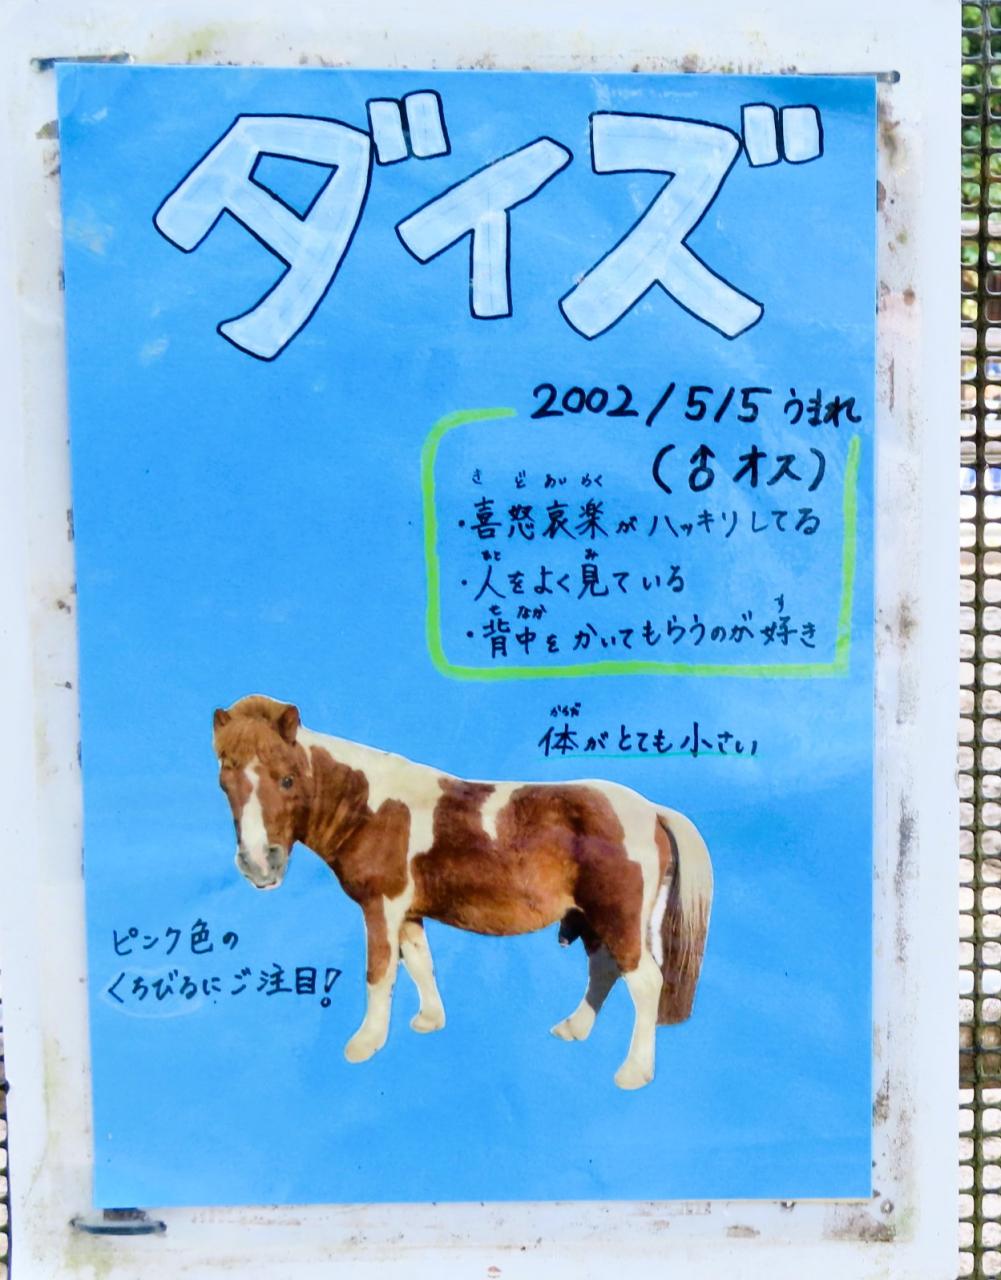 ダイズ
2002/5/5 うまれ
(♂ オス)
き ど あい らく
・喜怒哀楽がハッキリしてる
ひと み
・人をよく見ている
せ なか す
・背中をかいてもらうのが好き
からだ
体がとても小さい
ピンク色の
くちびるにご注目!